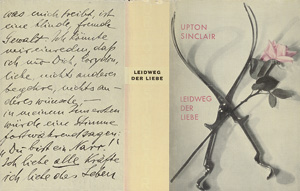 was mich treibt, ist
eine blinde, fremde
Gewalt. Ich könnte
mir einreden, daß
ich nur Dich, Corydon,
liebe, nichts anderes
begehre, nichts an-
deres wünsche,
in meinem Innersten
würde eine Stimme
fortwährend sagen:
"Du bist ein Narr!"
Ich liebe alle Kräfte
ich liebe das Leben
LEIDWEG
DER LIEBE
UPTON
SINCLAIR
LEIDWEG
DER
LIEBE